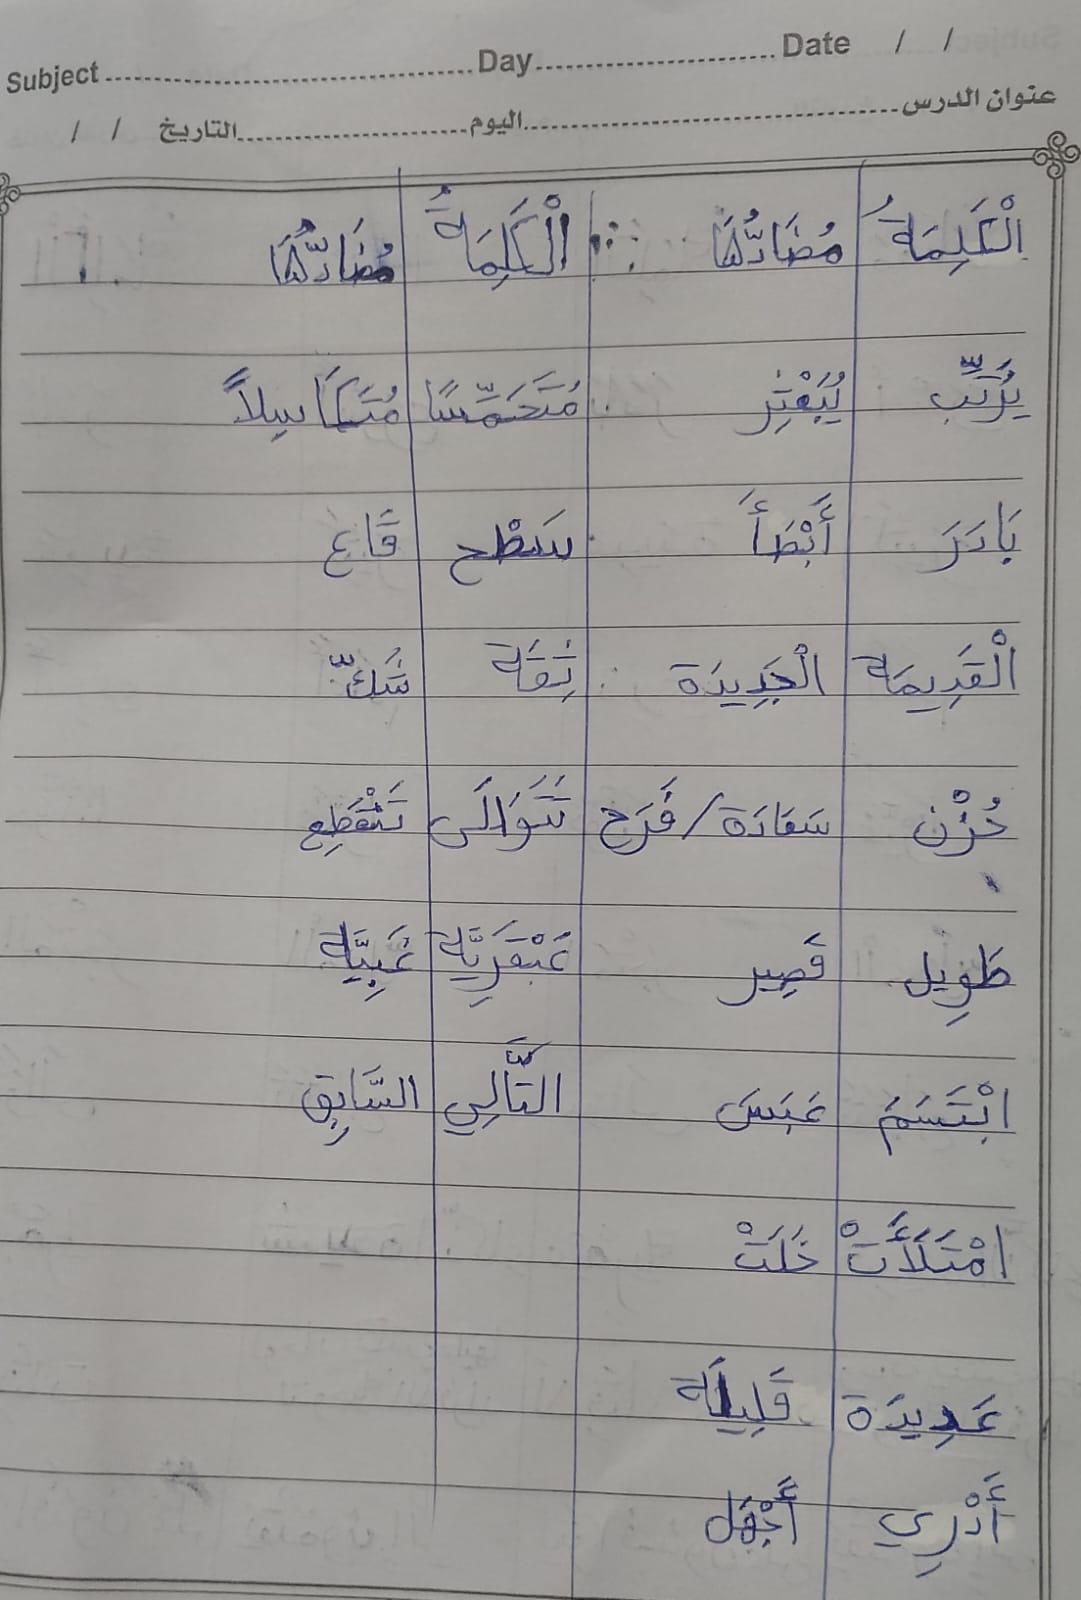 Subject Day Date / /
عنوان الدرس اليوم التاريخ / /
الْكَلِمَةُ مُضَادُّهَا الْكَلِمَةُ مُضَادُّهَا
يُرَتِّب يُبَعْثِر مُتَحَمِّسًا مُتَكَاسِلاً
بَادَرَ أَبْطَأَ سَطْح قَاع
الْقَدِيمَة الْجَدِيدَة ثِقَة شَكّ
حُزْن سَعَادَة / فَرَح تَتَوَالَى تَنْقَطِع
طَوِيل قَصِير عَبْقَرِيَّة غَبِيَّة
ابْتَسَمَ عَبَسَ التَّالِي السَّابِق
امْتَلَأَتْ خَلَتْ
عَدِيدَة قَلِيلَة
أَدْرِي أَجْهَل